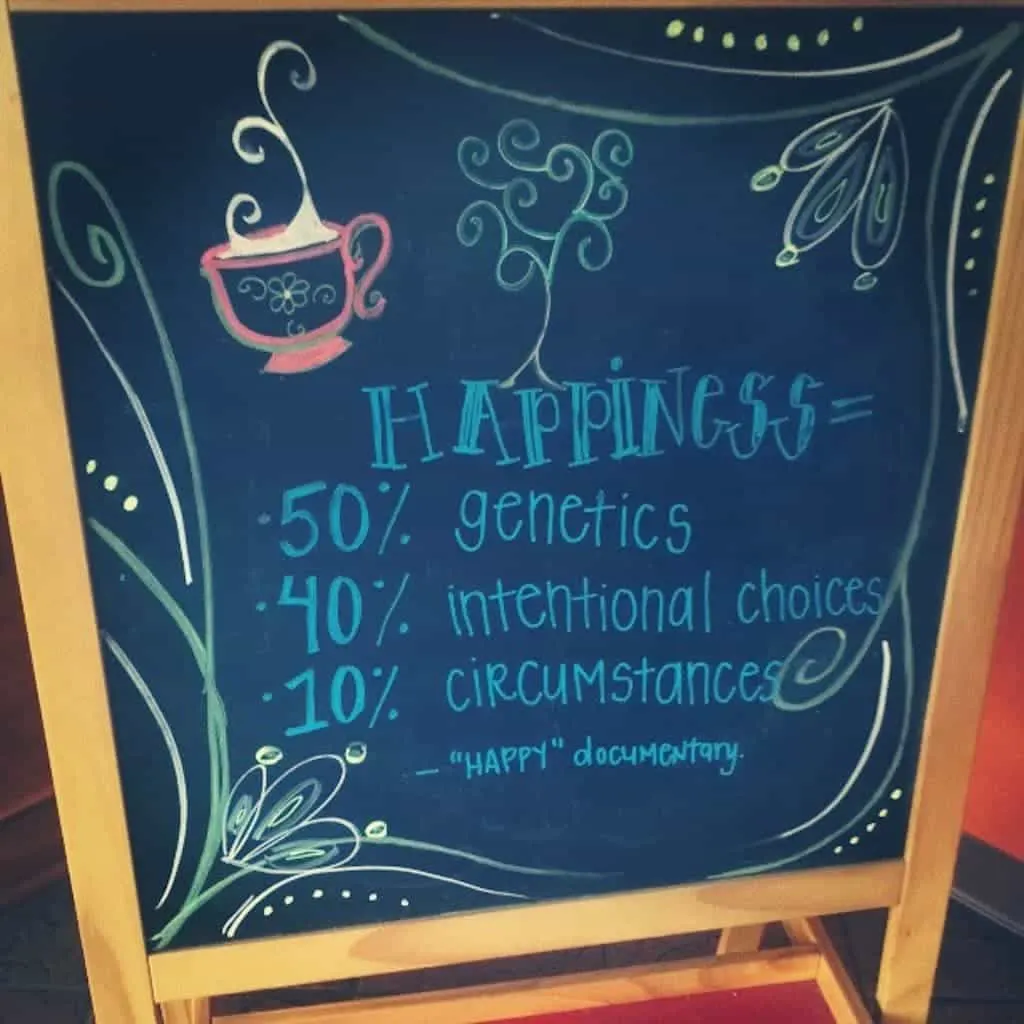 HAPPINESS=
·50% genetics
·40% intentional choices
·10% circumstances
— "HAPPY" documentary.